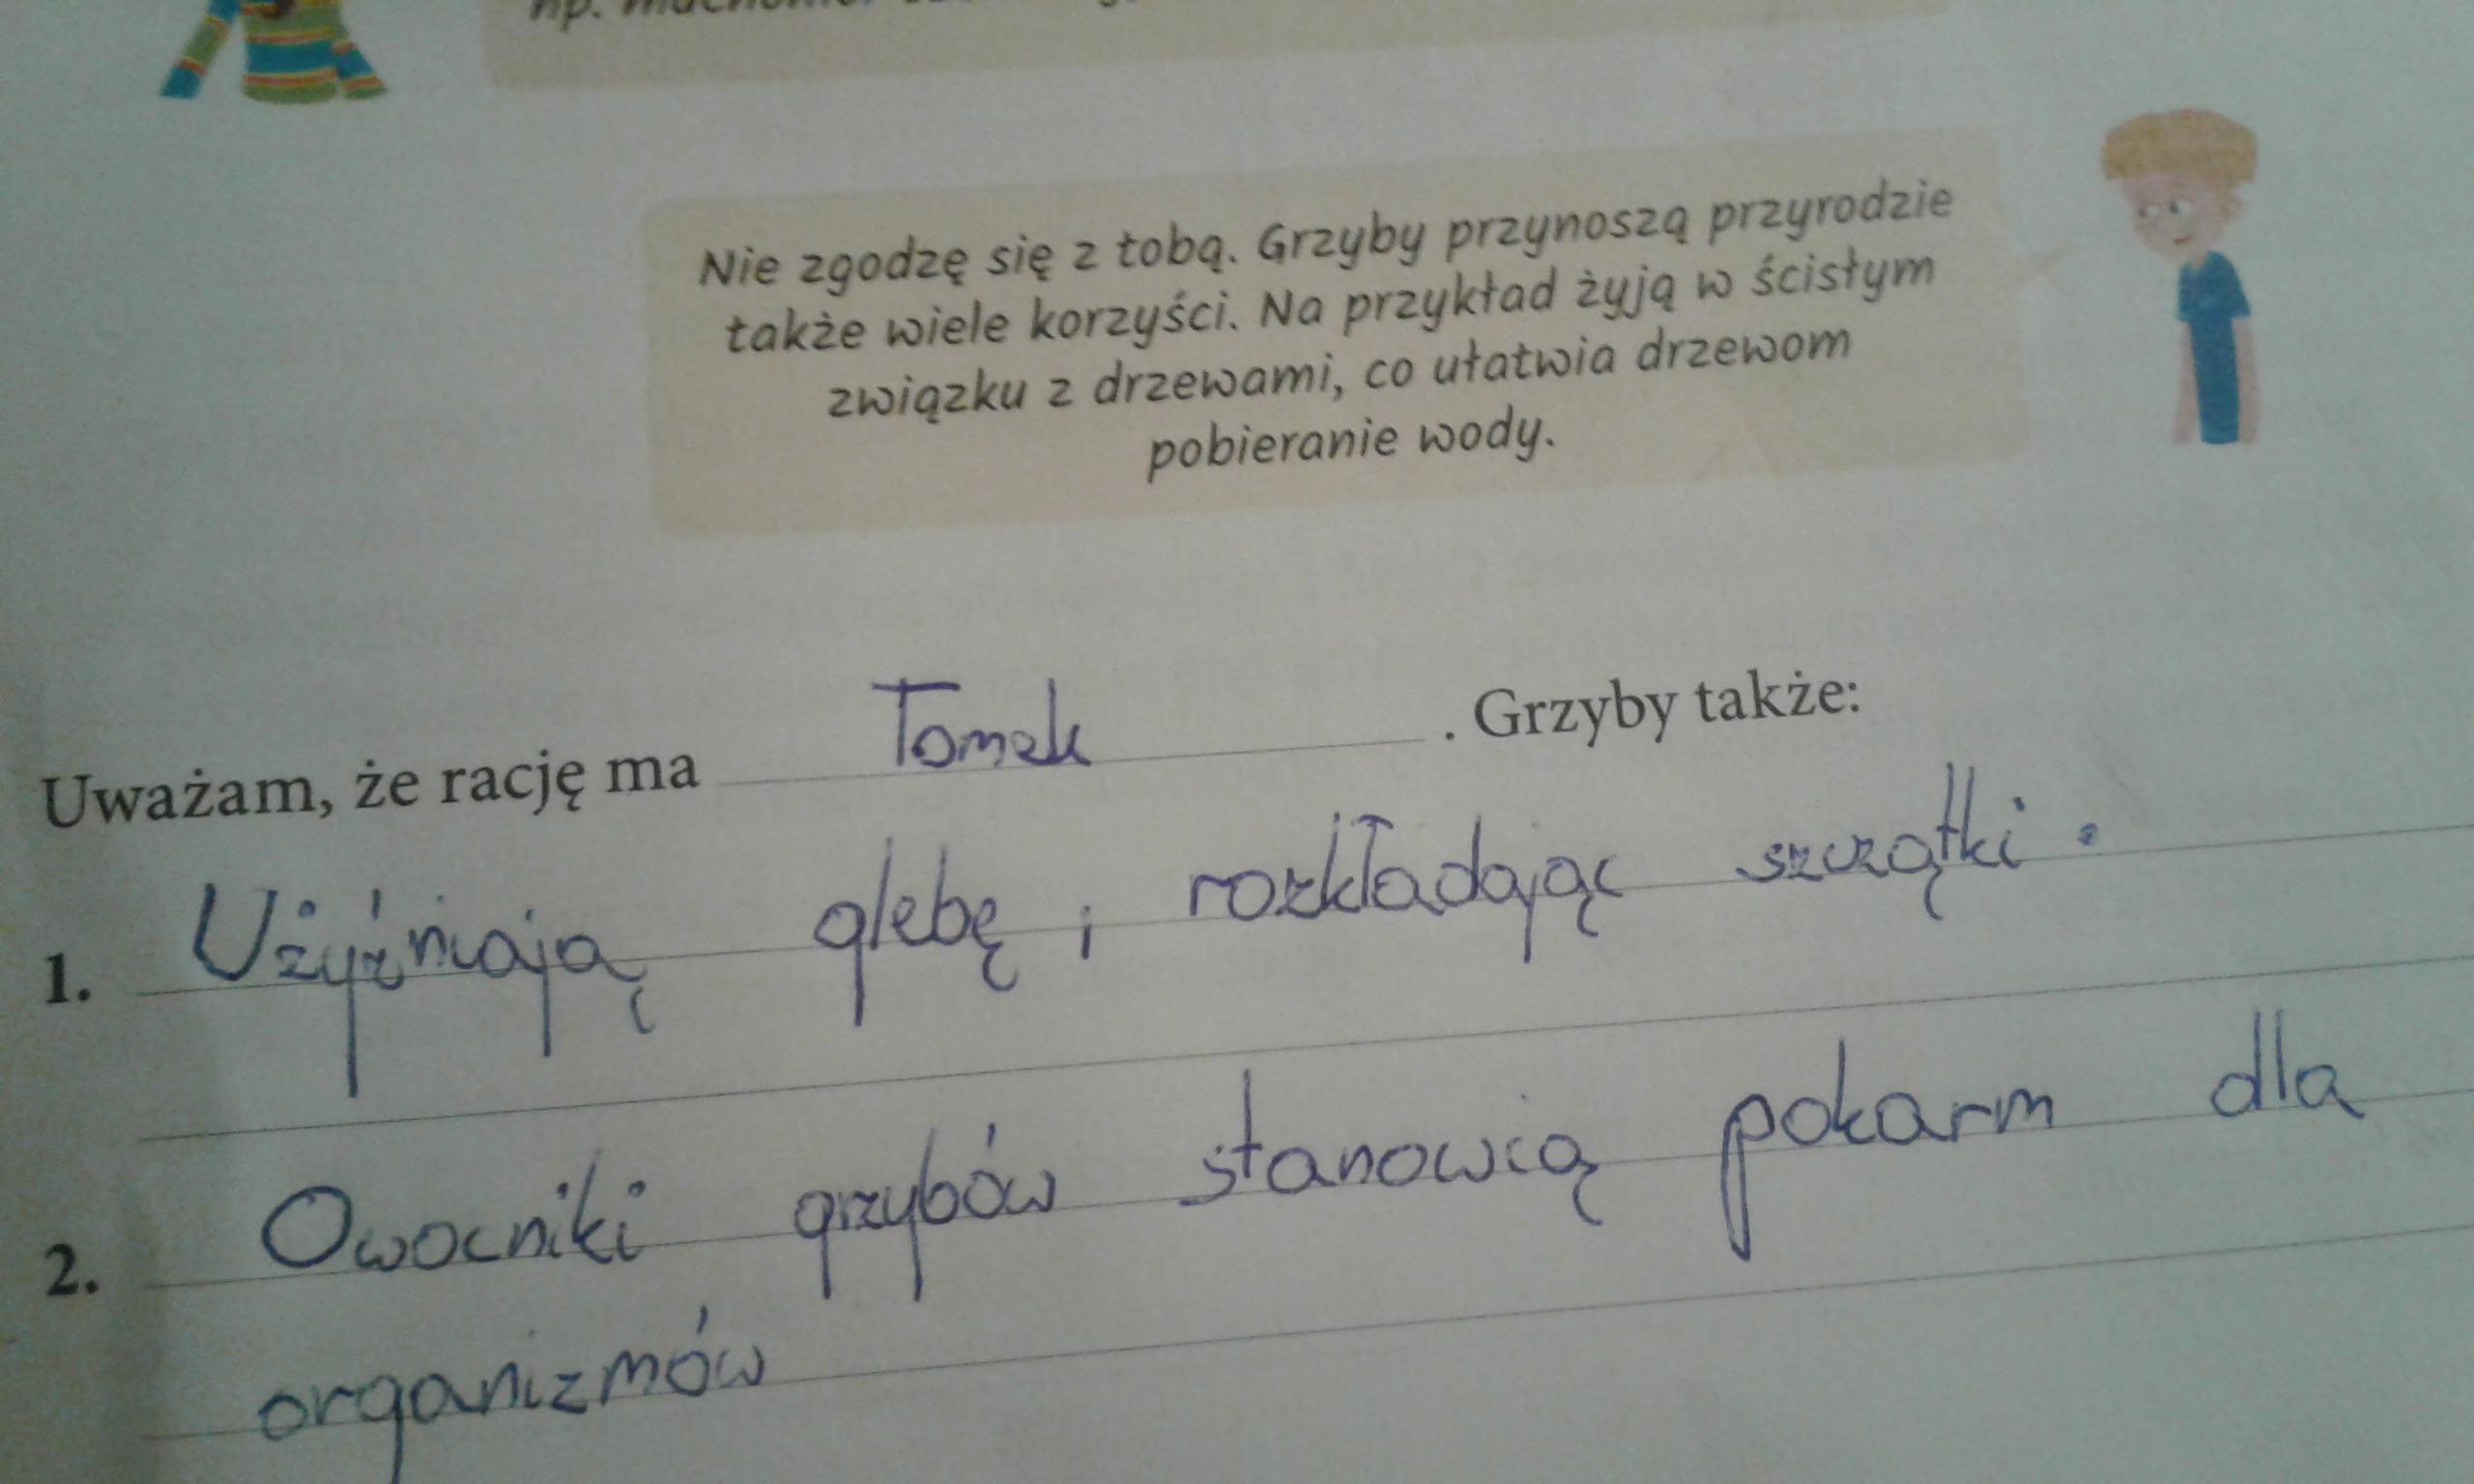 np.
Nie zgodzę się z tobą. Grzyby przynoszą przyrodzie
także wiele korzyści. Na przykład żyją w ścisłym
związku z drzewami, co ułatwia drzewom
pobieranie wody.
Uważam, że rację ma Tomek . Grzyby także:
1. Użyźniają glebę ; rozkładając szczątki.
2. Owocniki grzybów stanowią pokarm dla
organizmów